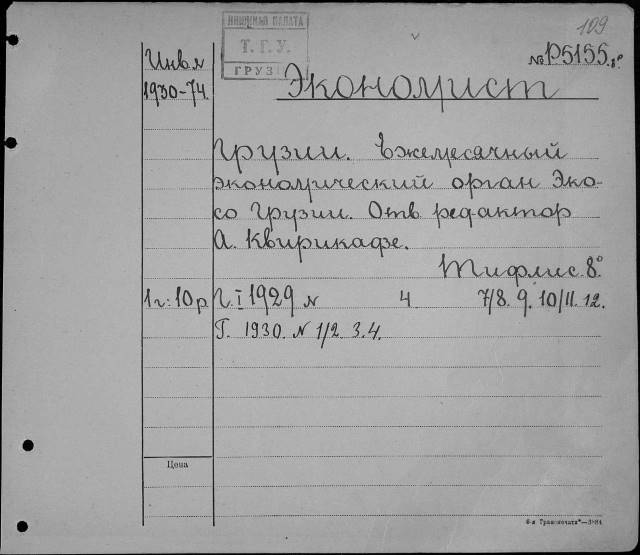 109
КНИЖНАЯ ПАЛАТА
Т. Г. У.
ГРУЗ
Инв.л
1930-74.
№ Р5155.8°
Экономист
Грузии. Ежемесячный
экономический орган Эко-
со Грузии. Отв. редактор
А. Квирикадзе.
Тифлис. 8°
1 г: 10 р. Г. I 1929 № 4 7/8. 9. 10/11. 12.
Г. 1930. № 1/2. 3. 4.
Цена